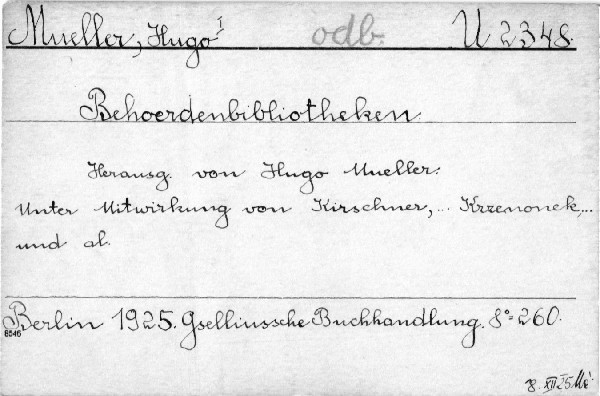 Mueller, Hugo I odb. U 2348.
Behoerdenbibliotheken
Herausg. von Hugo Mueller.
Unter Mitwirkung von Kirschner,... Krzenonek,...
und al.
Berlin 1925. Gselliussche Buchhandlung. 8°=260.
8546
8. XII 25 Mé